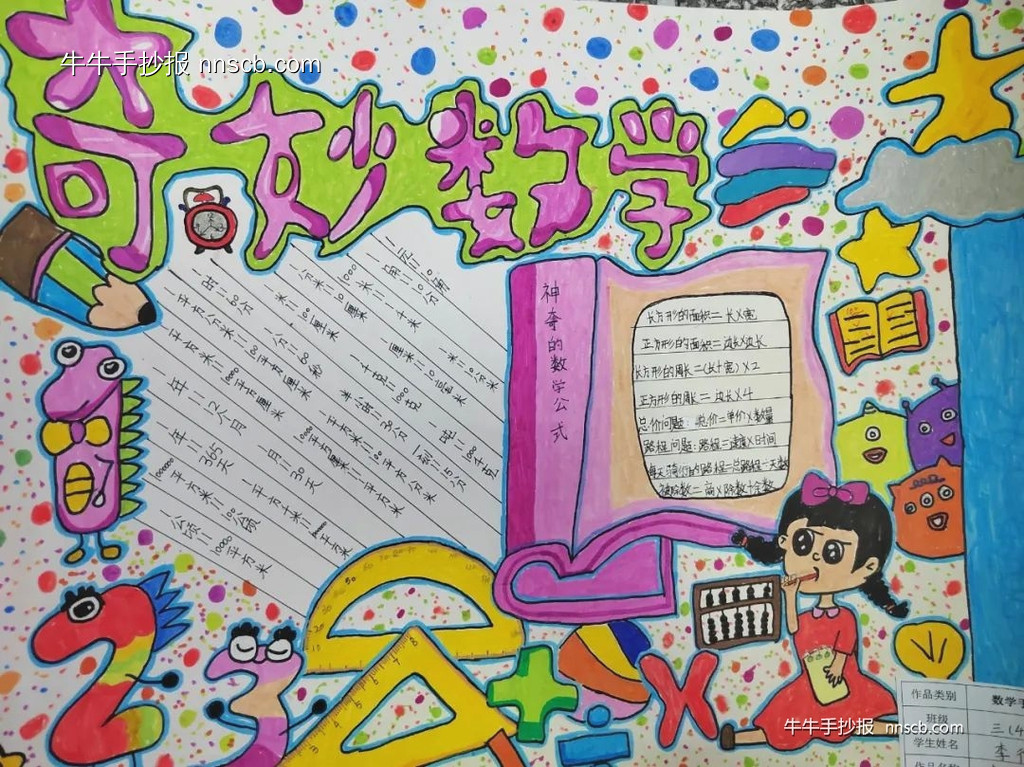 牛牛手抄报 nnscb.com
奇妙数学
一元=10角
一角=10分
1000米=1千米
一分米=10厘米
一米=10分米
一厘米=10毫米
一米=100厘米
一时=60分
一分=60秒
一吨=1000千克
半时=30分
一刻=15分
一平方分米=100平方厘米
一平方米=100平方分米
一平方米=10000平方厘米
一年=12个月
一月=30天
一年=365天
一平方千米=1000000平方米
1000000平方米=100公顷
一公顷=10000平方米
神奇的数学公式
长方形的面积=长×宽
正方形的面积=边长×边长
长方形的周长=(长+宽)×2
正方形的周长=边长×4
总价问题:总价=单价×数量
路程问题:路程=速度×时间
被除数=商×除数+余数
作品类别 数学手
班级 三(4
学生姓名 李
牛牛手抄报 nnscb.com